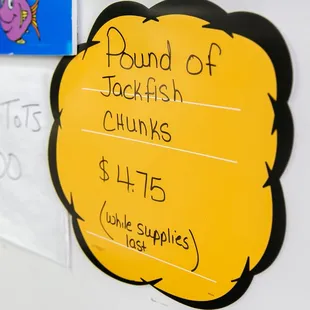 Pound of
Jackfish
CHUNKS
$4.75
(while supplies
last)
TOTS